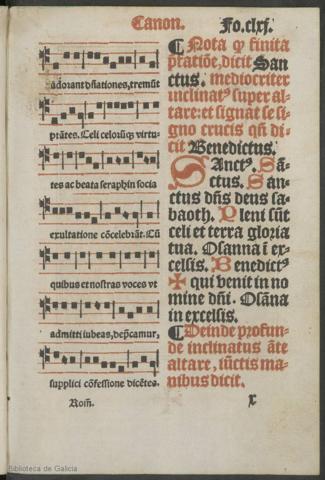 Canon.
Fo.clxj.
adorant dñationes, tremũt
ptãtes. Celi celorũqʒ virtu-
tes ac beata seraphin socia
exultatione cõcelebrãt. Cũ
quibus et nostras voces vt
admitti iubeas, dep̃camur,
supplici cõfessione dicẽtes.
Rom̃.
¶ Nota qp finita
p̃fatiõe, dicit San
ctus. mediocriter
inclinatꝰ super al-
tare: et signat se si-
gno crucis qñ di-
cit Benedictus.
SAnctꝰ. Sã-
ctus. San-
ctus dñs deus sa-
baoth. Pleni sũt
celi et terra gloria
tua. Osanna ĩ ex-
celsis. Benedictꝰ
✠ qui venit in no-
mine dñi. Osãna
in excelsis.
¶ Deinde profun-
de inclinatus ãte
altare, iũctis ma-
nibus dicit.
x
Biblioteca de Galicia